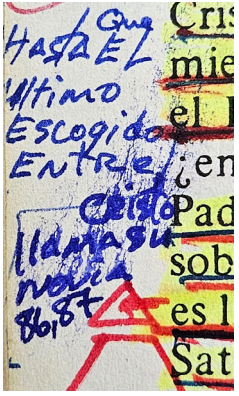 ¡Que
HASTA EL
Último
Escogido
ENTRE
Cristo
llama su
novia
86,87
Cris
mie
el
¿en
Pad
sob
es l
Sat